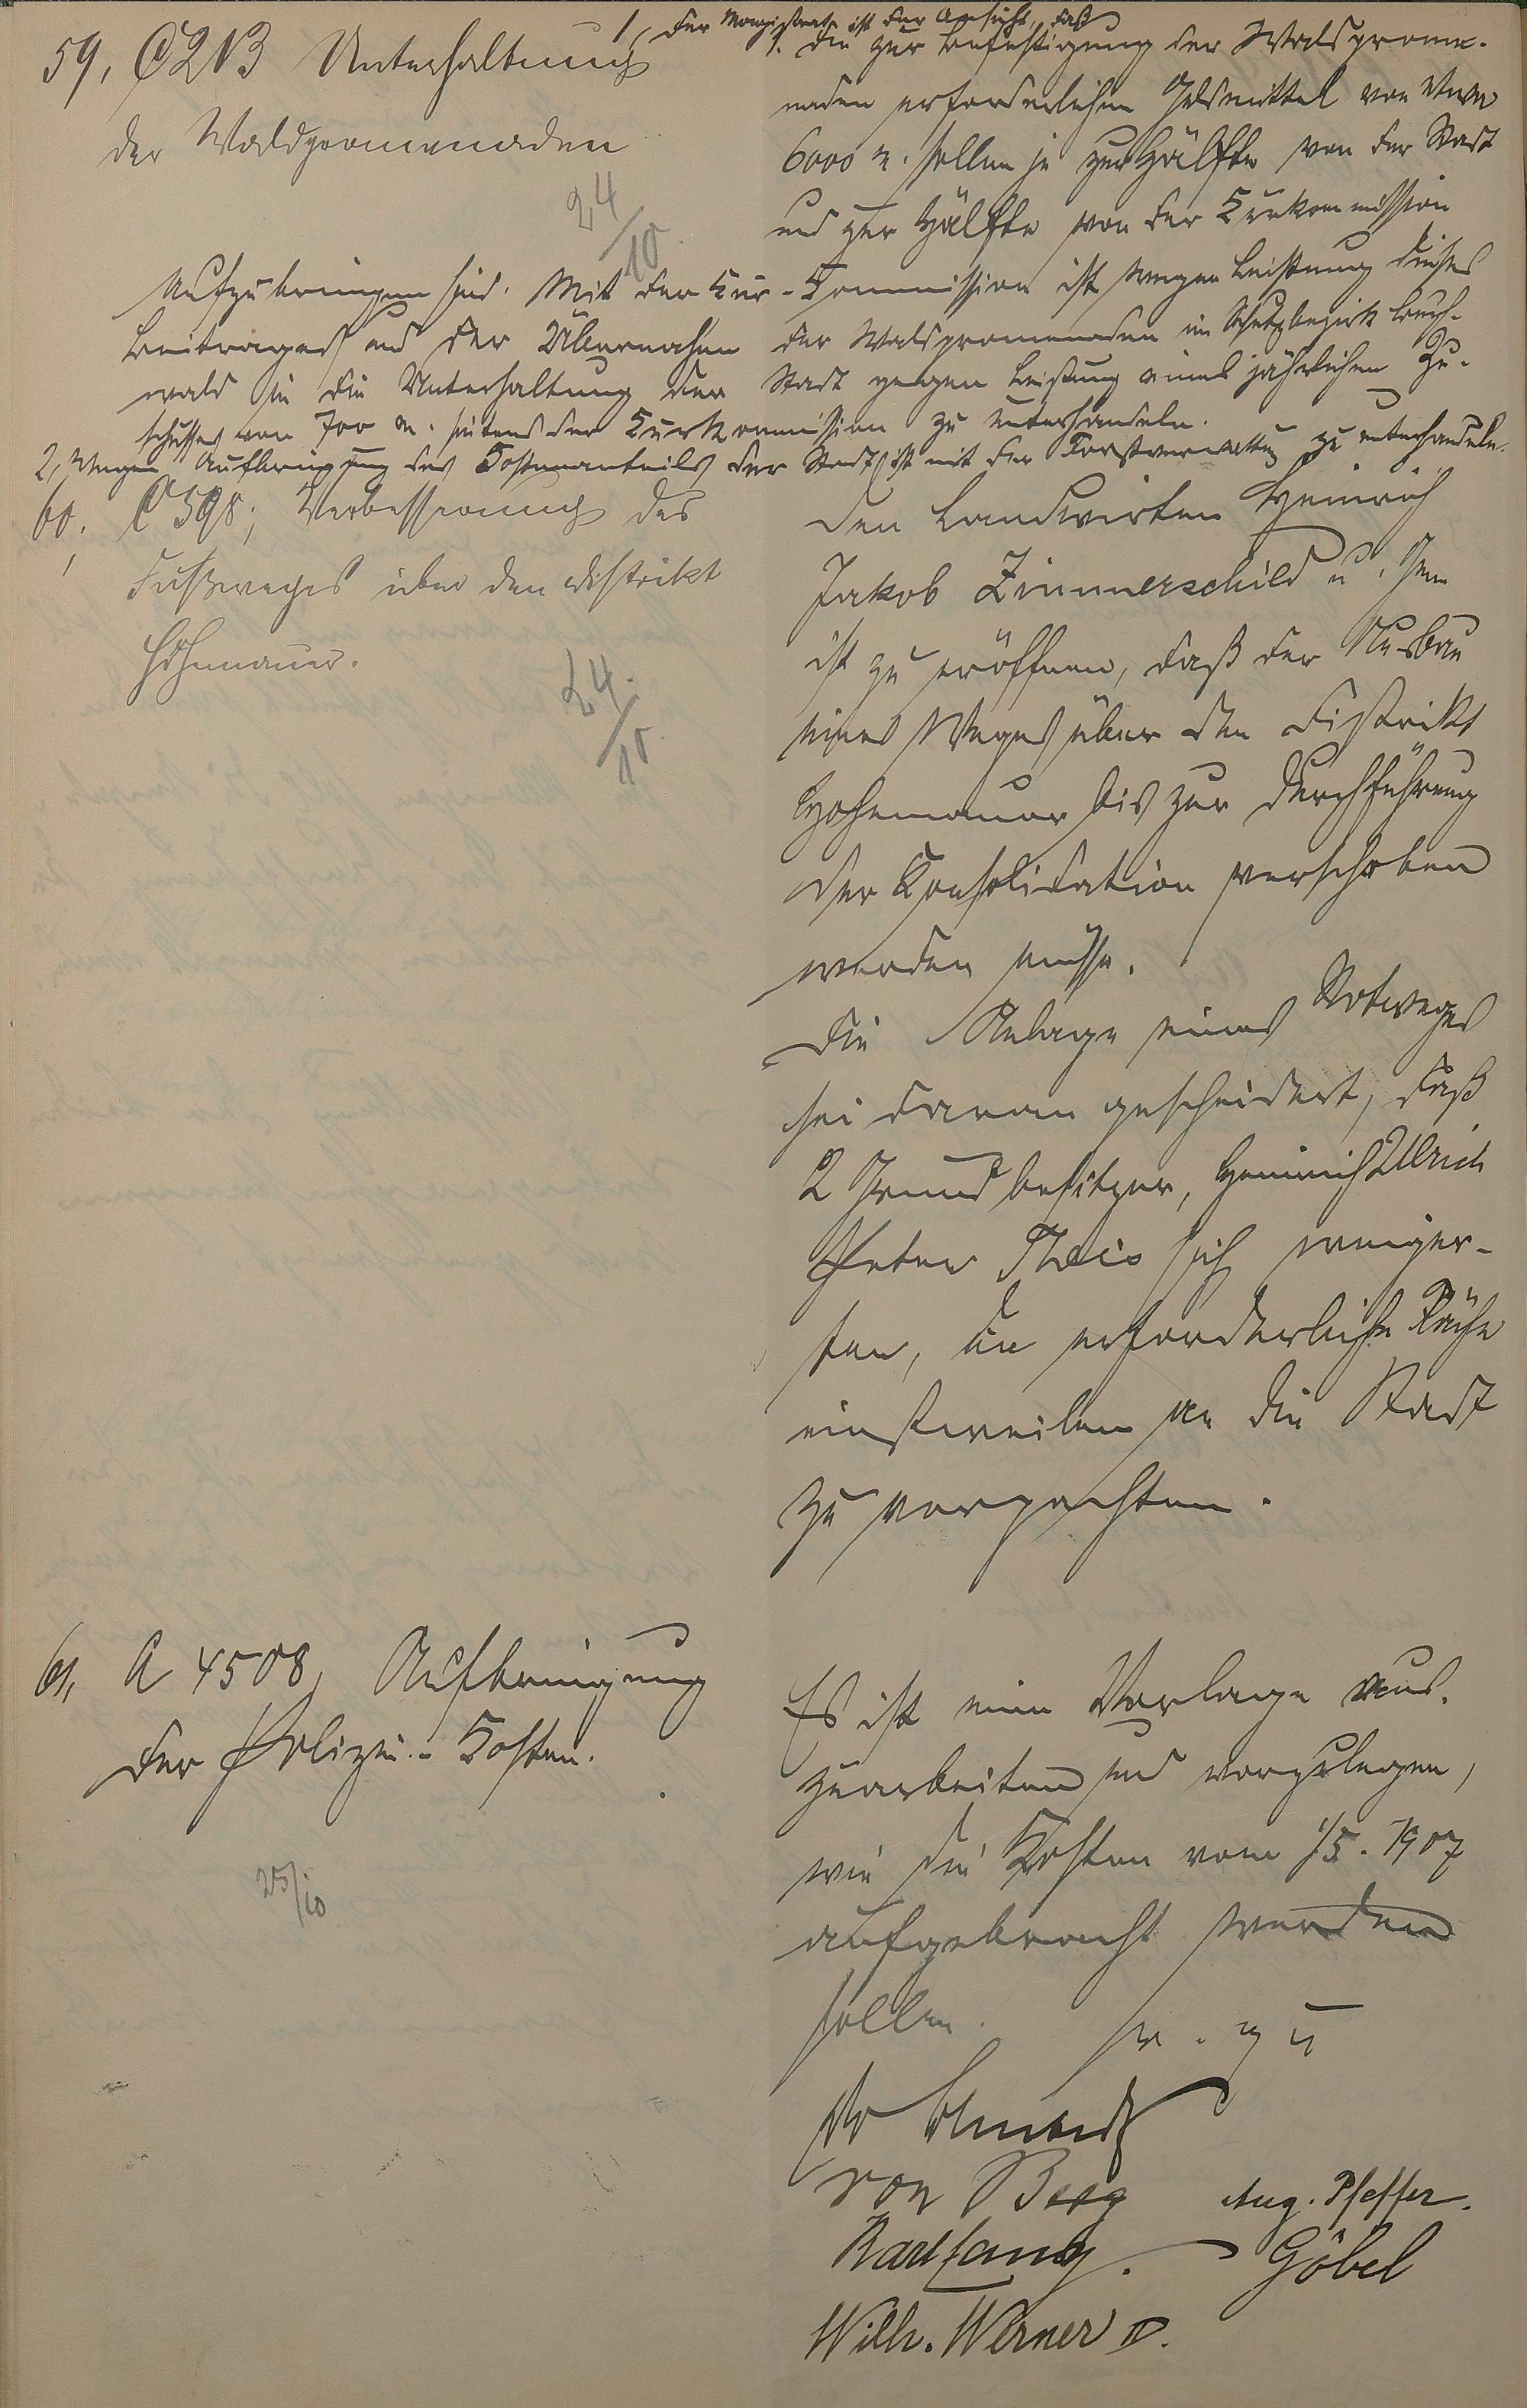 59, C 213 Unterhaltung
der Waldpromenaden
24/10
1, Der Magistrat ist der Ansicht, daß
1. die zur Befestigung der Waldprome-
naden erforderlichen Geldmittel von
6000 M. sollen je zur Hälfte von der Stadt
und zur Hälfte von der Kurkommission
aufzubringen sind. Mit der Kur-Kommission ist wegen Leistung dieses
Beitrages und der Übernahme der Waldpromenaden im Schutzbezirk
wald in die Unterhaltung der Stadt gegen Leistung eines jährlichen Zu-
schusses von 700 M. seitens der Kurkommission zu unterhandeln.
2, Wegen Aufbringung des Kostenanteils der Stadt ist mit der Forstverwaltung zu unterhandeln.
60. C 398; Verbesserung des
Fußweges über den Distrikt
Hohemauer.
24./10.
Den Landwirten Heinrich
Jakob Zimmerschild u. Gen
ist zu eröffnen, daß der Ausbau
eines Weges über den Distrikt
Hohemauer bis zur Durchführung
der Konsolidation verschoben
werden müsse.
Die Anlage eines Notweges
sei daran gescheidert, daß
2 Grundbesitzer, Heinrich Ullrich
Peter Theis sich weiger-
ten, die erforderliche Fläche
einstweilen an die Stadt
zu verpachten.
61, A 4508, Aufbringung
der Polizei-Kosten.
25/10
Es ist eine Vorlage aus-
zuarbeiten und vorzulegen,
wie die Kosten vom 1/5. 1907
aufgebracht werden
sollen. v. g. u
von Berg Aug. Pfeffer.
Karl Lang. Göbel
Wilh. Werner II.